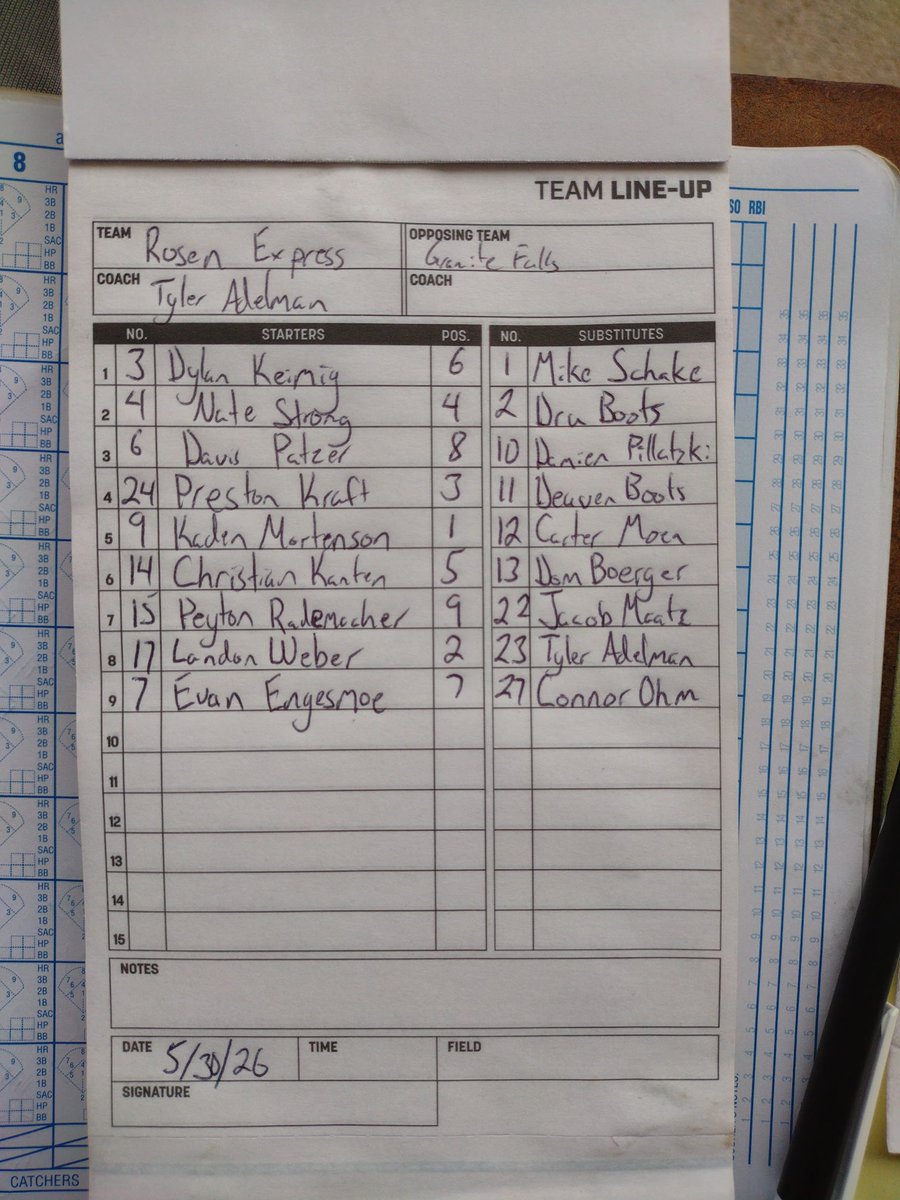 TEAM LINE-UP
TEAM Rosen Express OPPOSING TEAM Granite Falls
COACH Tyler Adelman COACH
NO. STARTERS POS. NO. SUBSTITUTES
1 3 Dylan Keimig 6 1 Mike Schake
2 4 Nate Strong 4 2 Dru Boots
3 6 Davis Patzer 8 10 Damien Pillatzki
4 24 Preston Kraft 3 11 Deaven Boots
5 9 Kaden Mortenson 1 12 Carter Moen
6 14 Christian Kanten 5 13 Dom Boerger
7 15 Peyton Rademacher 9 22 Jacob Maatz
8 17 Landon Weber 2 23 Tyler Adelman
9 7 Evan Engesmoe 7 27 Connor Ohm
10
11
12
13
14
15
NOTES
DATE 5/30/26 TIME FIELD
SIGNATURE
8
HR
3B
2B
1B
SAC
HP
BB
SO RBI
CATCHERS